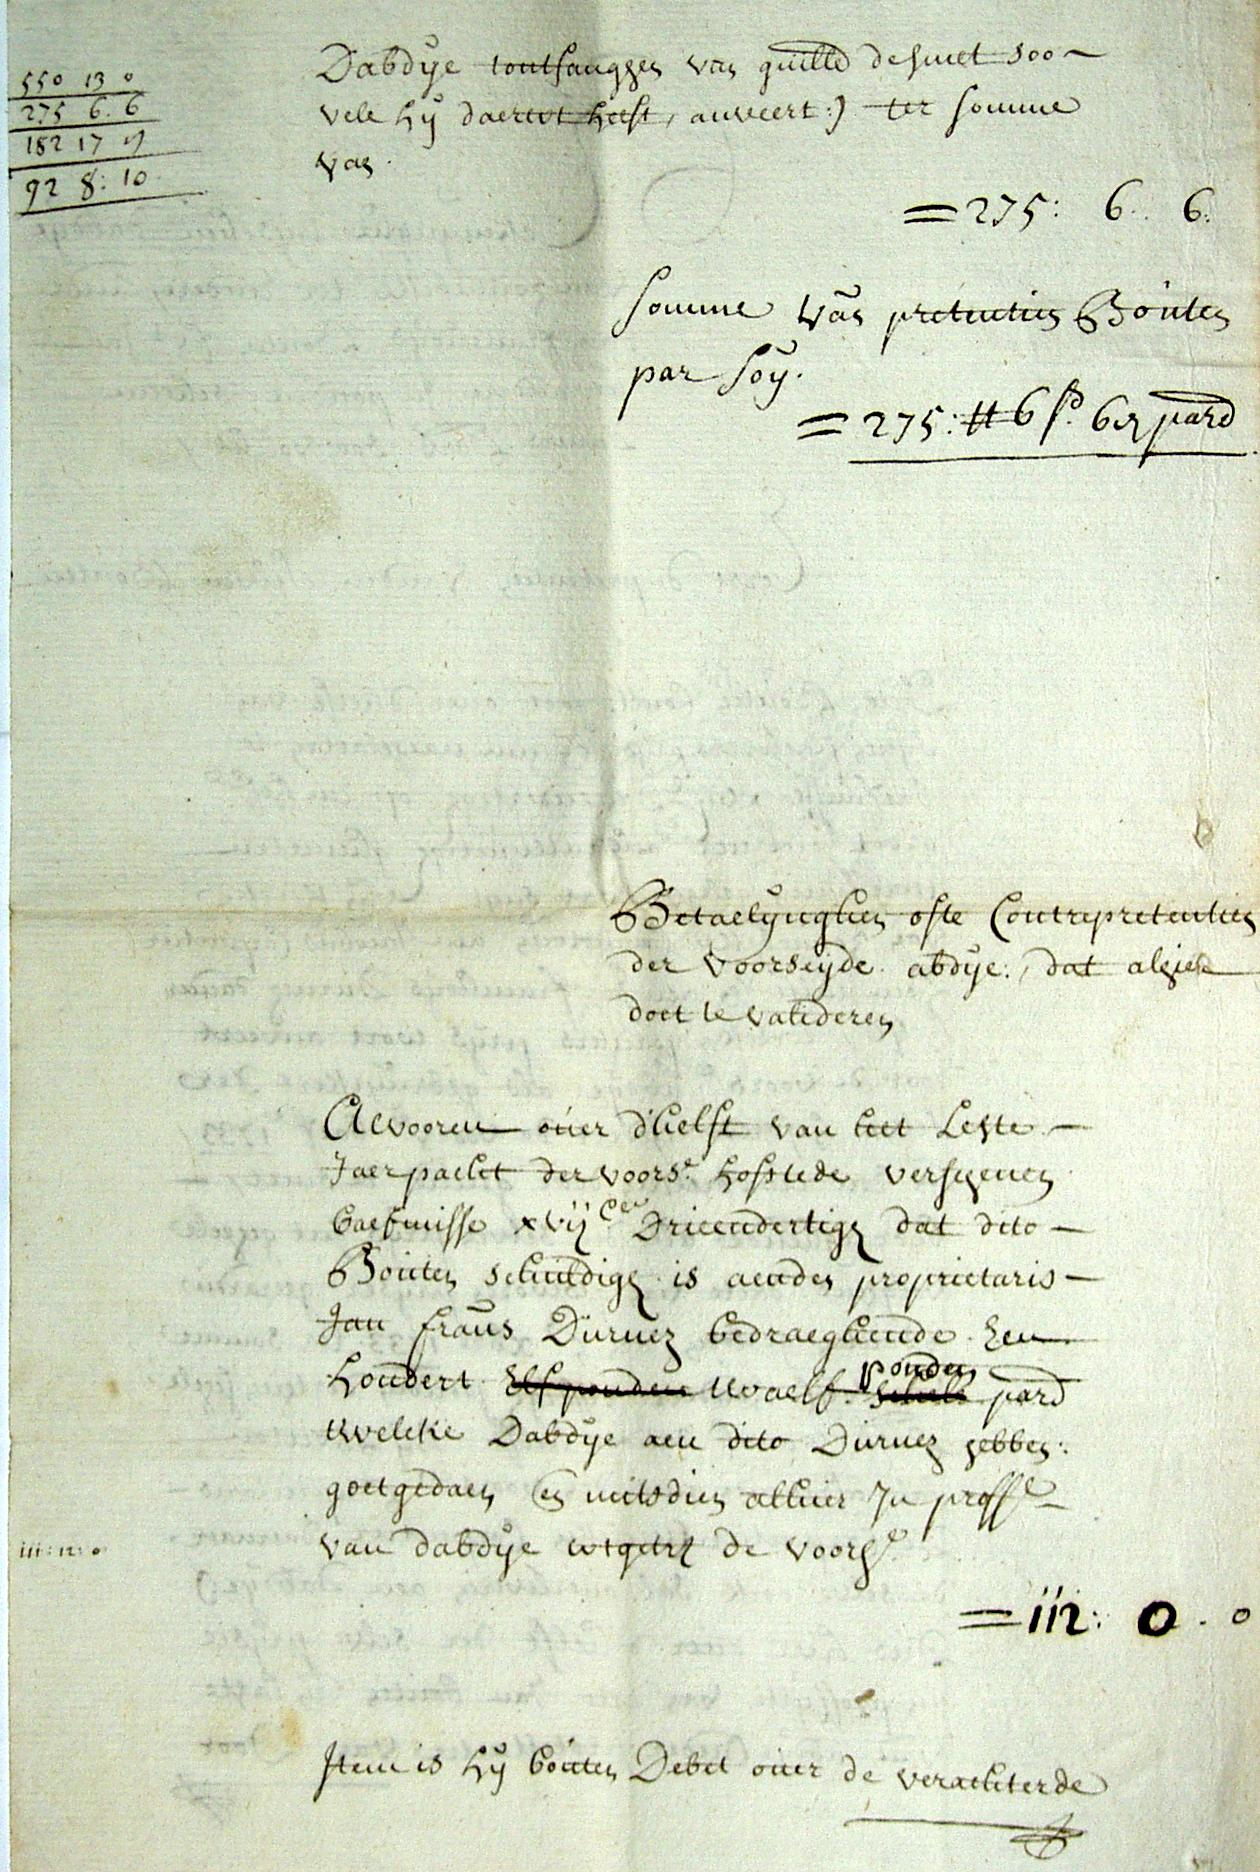 550 13 0
275 6. 6
182 17 
92 8: 10
Dabdÿe tontfanghen van guille desmet soo
vele hÿ daertot heeft, anveert :) ter somme
van.
= 275: 6. 6.
Somme van pretentien Bouten
par soy.
= 275: ₶ 6 s. 6 d. pard
Betaelÿnghen ofte Contrepretentien
der voorseÿde abdÿe, dat alhier
doet te valideren
Alvooren over d'helft van het Leste
Jaer pacht der voors. hofstede verschenen
baefmisse xvij Drieendertigh dat dito
Bouten schuldigh is aenden proprietaris
Jan frans Durnez bedraeghende Een
hondert Elf ponden twaelf schele ponden pard
twelcke Dabdÿe aen dito Durnez hebben
goetgedaen en mitsdien alhier In proff.
van dabdÿe wtgetr. de voors.
iii: 12: 0
= 112: 0. 0
Item is hÿ bouten Debet over de verachterde